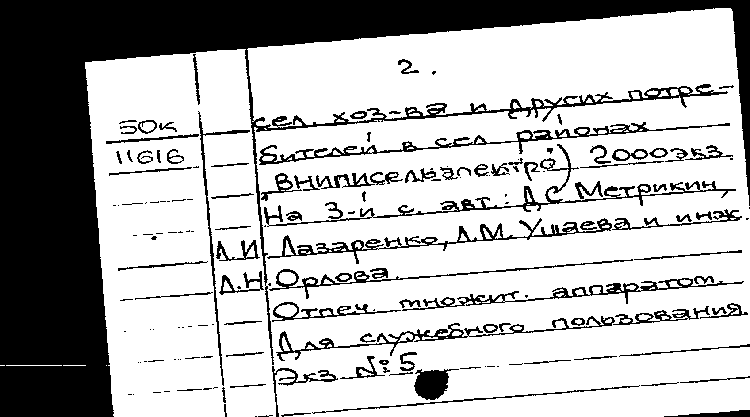 2.
50к сел. хоз-ва и других потре-
11616 бителей в сел районах
ВНИПИсельэлектро) 2000экз.
На 3-й с. авт.: Д.С Метрикин,
Л.И. Лазаренко, Л.М. Ушаева и инж.
Л.Н. Орлова.
Отпеч. множит. аппаратом.
Для служебного пользования.
Экз №: 5.